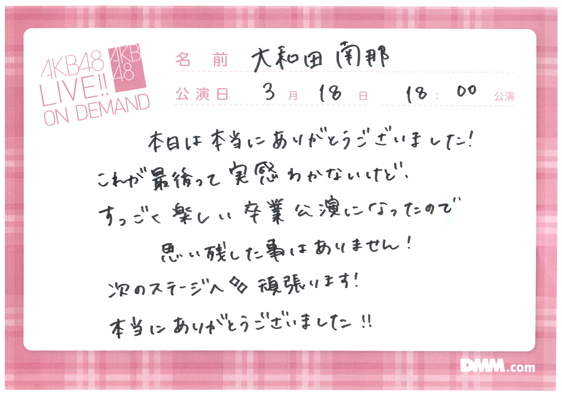 AKB48
LIVE!!
ON DEMAND
AKB
48
名前 大和田 南那
公演日 3月 18日 18:00 公演
本日は本当にありがとうございました!
これが最後って実感わかないけど、
すっごく楽しい卒業公演になったので
思い残した事はありません!
次のステージへ 頑張ります!
本当にありがとうございました!!
DMM.com